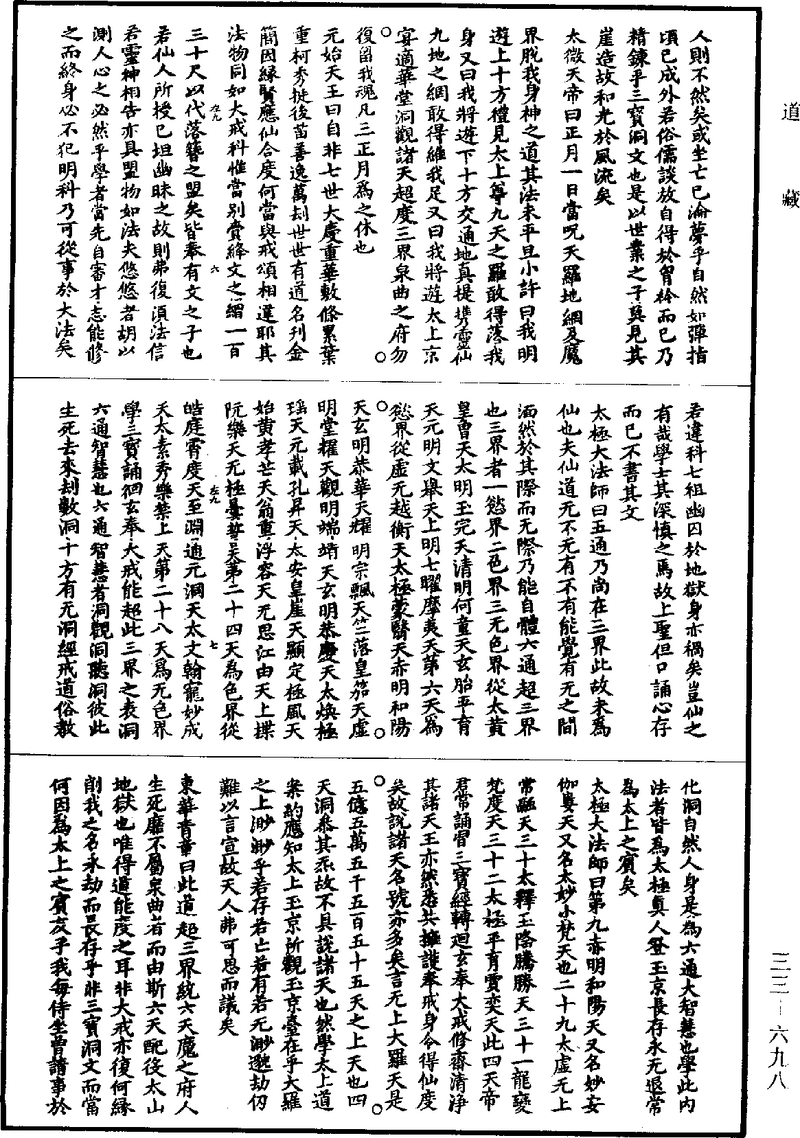 道藏
人則不然矣或坐亡已淪夢乎自然如彈指
頃已成外若俗儒談放自得於胷衿而已乃
精鍊乎三寶洞文也是以世業之子莫見其
崖造故和光於風流矣
太微天帝曰正月一日當呪天羅地網及魔
界脫我身神之道其法未平旦小許曰我明
遊上十方禮見太上尊九天之羅敢得落我
身又曰我將遊下十方交通地真提携靈仙
九地之網敢得維我足又曰我將遊太上京
宴適華堂洞觀諸天超度三界泉曲之府勿
復留我魂凡三正月為之休也
元始天王曰自非七世大慶重華敷條累葉
重柯秀挻後苗善逸萬刦世世有道名刊金
簡因緣賢應仙合度何當與戒頌相違耶其
法物同如大戒科惟當別賷絳文之繒一百
左九　六
三十尺以代落簪之盟矣皆奉有文之子也
若仙人所授已坦幽昧之故則弗復湏法信
若靈神相告亦具盟物如法夫悠悠者胡以
測人心之必然乎學者當先自審才志能修
之而終身必不犯明科乃可從事於大法矣
若違科七祖幽囚於地獄身亦禍矣豈仙之
有哉學士其深慎之焉故上聖但口誦心存
而已不書其文
太極大法師曰五通乃尚在三界此故未為
仙也夫仙道无不无有不有能覺有无之間
洏然於其際而无際乃能自體六通超三界
也三界者一慾界二色界三无色界從太黄
皇曾天太明玉完天清明何童天玄胎平育
天元明文舉天上明七曜摩夷天第六天為
慾界從虛无越衡天太極蒙翳天赤明和陽
天玄明恭華天耀明宗飄天竺落皇笳天虛
明堂耀天觀明端靖天玄明恭慶天太煥極
瑶天元載孔昇天太安皇崖天顯定極風天
始黄孝芒天翁重浮容天无思江由天上揲
阮樂天无極曇誓天第二十四天為色界從
左九　七
皓庭霄度天至淵通元洞天太文翰寵妙成
天太素秀樂禁上天第二十八天爲无色界
學三寶誦徊玄奉大戒能超此三界之表洞
六通智慧也六通智慧者洞觀洞聽洞彼此
生死去來刦數洞十方有无洞經戒道俗教
化洞自然人身是為六通大智慧也學此內
法者皆為太極真人登玉京長存永无退常
為太上之賓矣
太極大法師曰第九赤明和陽天又名妙安
伽婁天又名太妙小梵天也二十九太虛无上
常融天三十太釋玉隆騰勝天三十一龍變
梵度天三十二太極平育賈奕天此四天帝
君常誦習三寶經轉迴玄奉大戒修齋清淨
其諸天王亦然悉共擁護奉戒身令得仙度
矣故說諸天名號亦多矣言无上大羅天是
五億五萬五千五百五十五天之上天也四
天洞悉其炁故不具說諸天也然學太上道
業約應知太上玉京所觀玉京臺在乎大羅
之上渺渺乎若存若亡若有若无渺邈劫仞
難以言宣故天人弗可思而議矣
東華青童曰此道超三界統六天魔之府人
生死靡不屬泉曲者而由斯六天配役太山
地獄也唯得道能度之耳非大戒亦復何縁
削我之名永劫而長存乎非三寶洞文而當
何因為太上之賓友乎我每侍坐曽請事於
三三－六九八